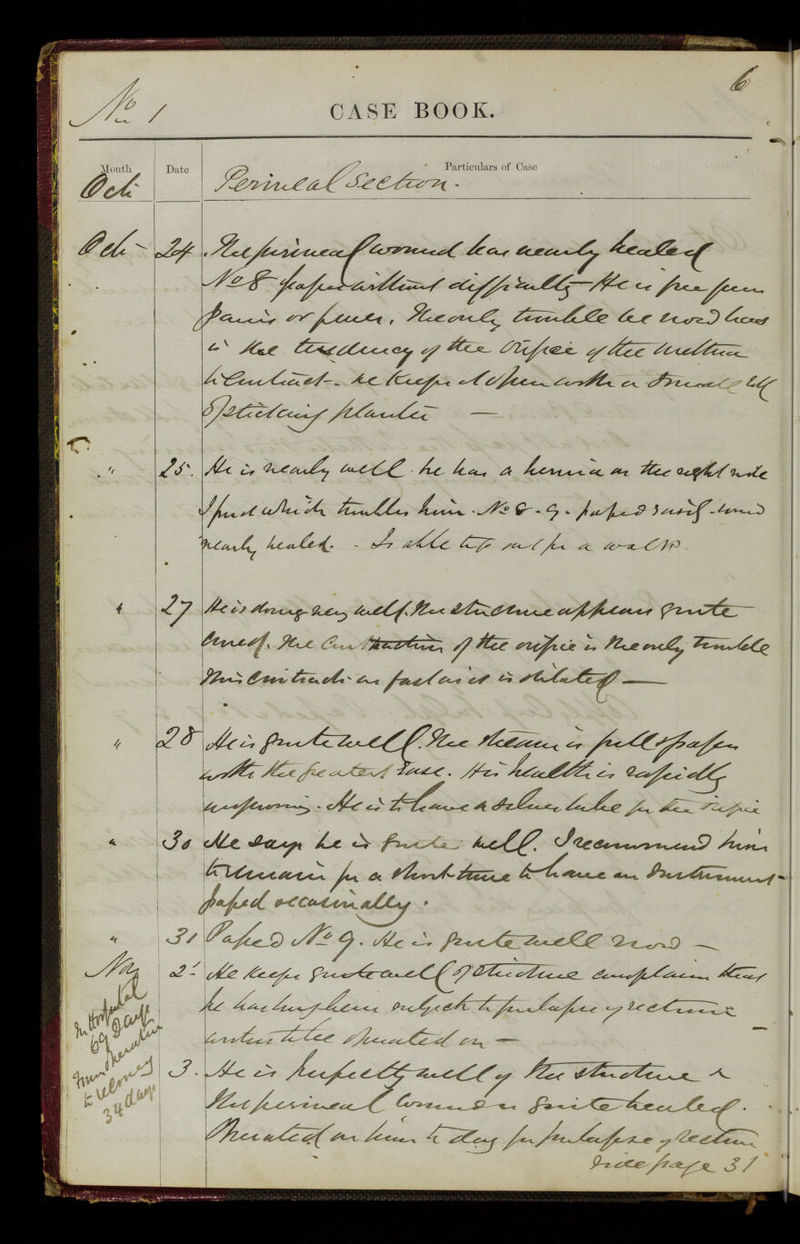 6
No 1
CASE BOOK.
Month Date Particulars of Case
Oct Perineal Section.
Oct - 24 The perineal wound has nearly healed
No 8 passes without difficulty - He is free from
pain or fever. The only trouble he now has
is the tendency of the orifice of the urethra
to contract - he keeps it open with a small roll
of sticking plaster -
" 25. He is nearly well he has a hernia on the right side
I find which troubles him. No 8 - 9 - passed easily wound
nearly healed. - Is able to go out for a walk
" 27 He is doing very well. The stricture appears quite
cured. The contraction of the orifice is the only trouble
this contracts as fast as it is dilated -
" 28 He is quite well. The stream is full & passes
with the greatest ease. His health is rapidly
improving. He is to have a silver tube for the orifice
" 30 He says he is quite well. I recommend him
to remain for a short time to have an Instrument
passed occasionally.
" 31 Passed No 9. He is quite well now -
Nov 2d He keeps quite well of stricture complains that
he has long been subject to prolapse of rectum
wishes to be operated on -
3. He is perfectly well of the stricture &
the perineal wound is quite healed.
Operated on him to day for prolapse of rectum
vide page 31
In Hospital
69 Days
From Operation
to recovery
34 days